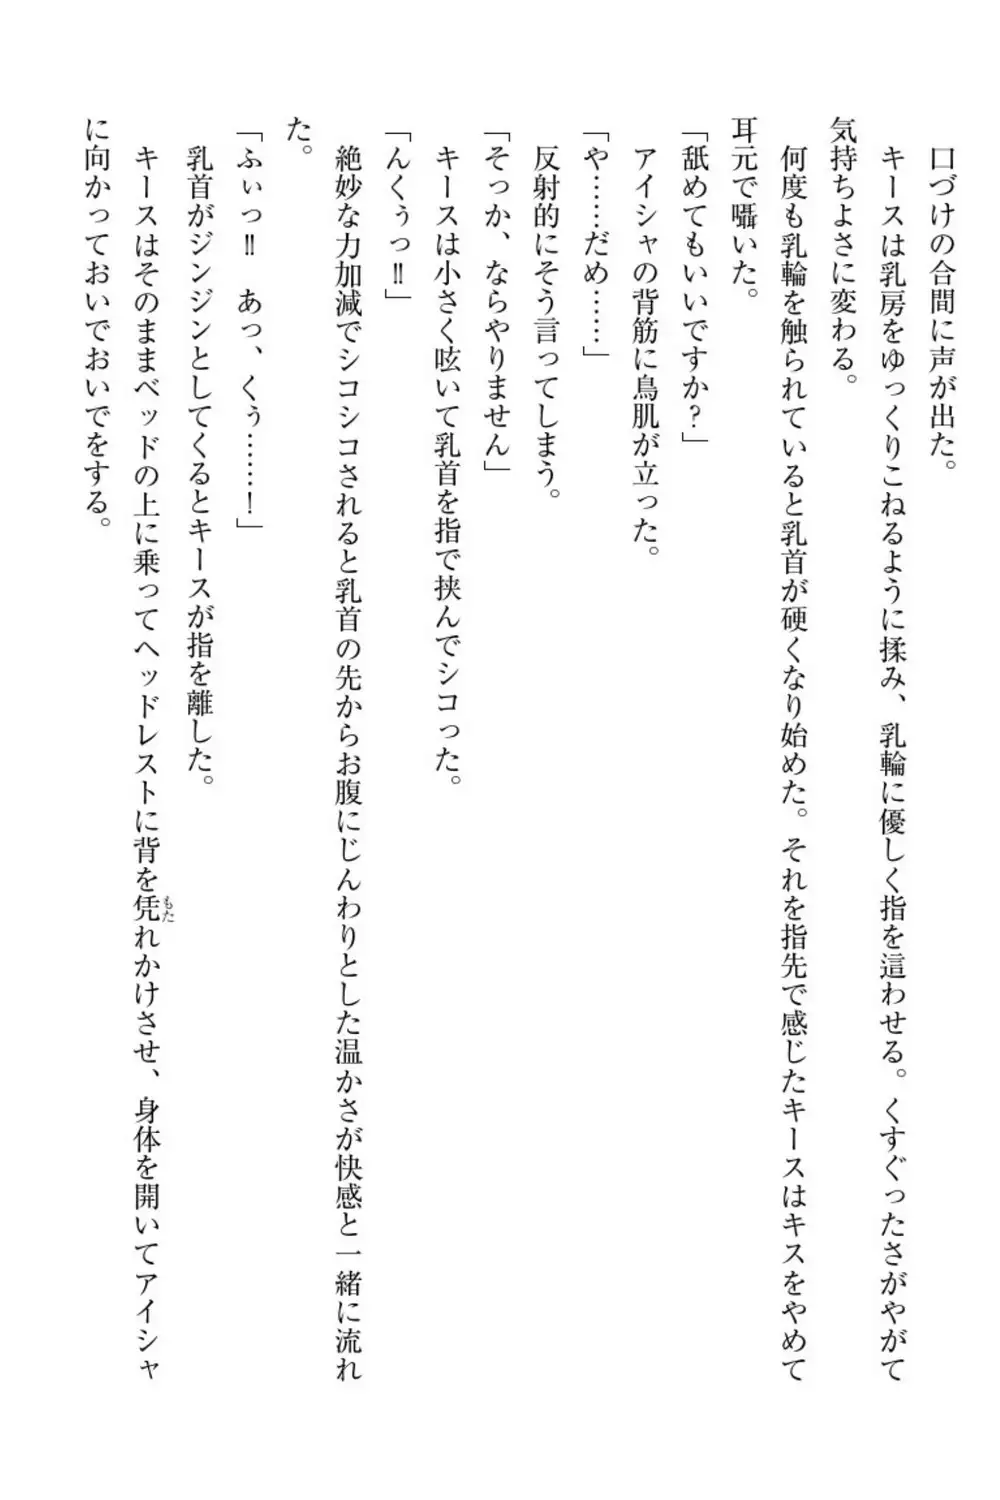 口づけの合間に声が出た。
キースは乳房をゆっくりこねるように揉み、乳輪に優しく指を這わせる。くすぐったさがやがて
気持ちよさに変わる。
何度も乳輪を触られていると乳首が硬くなり始めた。それを指先で感じたキースはキスをやめて
耳元で囁いた。
「舐めてもいいですか？」
アイシャの背筋に鳥肌が立った。
「や……だめ……」
反射的にそう言ってしまう。
「そっか、ならやりません」
キースは小さく呟いて乳首を指で挟んでシコった。
「んくぅっ‼」
絶妙な力加減でシコシコされると乳首の先からお腹にじんわりとした温かさが快感と一緒に流れ
た。
「ふぃっ‼　あっ、くぅ……！」
乳首がジンジンとしてくるとキースが指を離した。
キースはそのままベッドの上に乗ってヘッドレストに背を凭れかけさせ、身体を開いてアイシャ
に向かっておいでおいでをする。